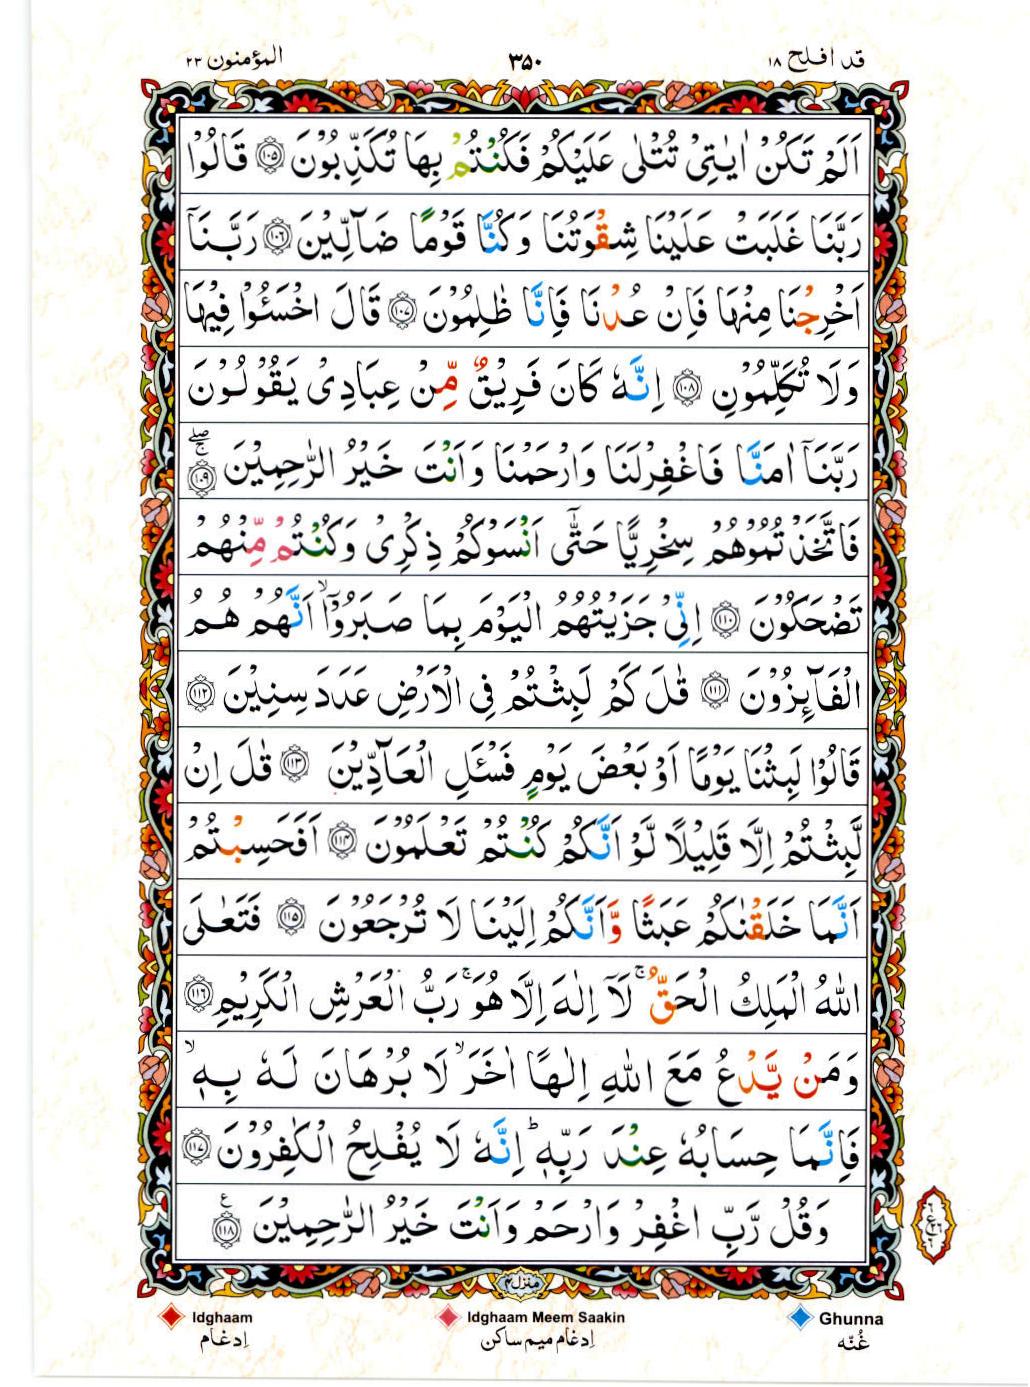 المؤمنون ٢٣
٣٥٠
قد افلح ١٨
اَلَمْ تَكُنْ اٰيٰتِىْ تُتْلٰى عَلَيْكُمْ فَكُنْتُمْ بِهَا تُكَذِّبُوْنَ ۝١٠٥ قَالُوْا
رَبَّنَا غَلَبَتْ عَلَيْنَا شِقْوَتُنَا وَكُنَّا قَوْمًا ضَآلِّيْنَ ۝١٠٦ رَبَّنَآ
اَخْرِجْنَا مِنْهَا فَاِنْ عُدْنَا فَاِنَّا ظٰلِمُوْنَ ۝١٠٧ قَالَ اخْسَئُوْا فِيْهَا
وَلَا تُكَلِّمُوْنِ ۝١٠٨ اِنَّهٗ كَانَ فَرِيْقٌ مِّنْ عِبَادِىْ يَقُوْلُوْنَ
رَبَّنَآ اٰمَنَّا فَاغْفِرْلَنَا وَارْحَمْنَا وَاَنْتَ خَيْرُ الرّٰحِمِيْنَ ۝١٠٩ ۚۖ
فَاتَّخَذْتُمُوْهُمْ سِخْرِيًّا حَتّٰٓى اَنْسَوْكُمْ ذِكْرِىْ وَكُنْتُمْ مِّنْهُمْ
تَضْحَكُوْنَ ۝١١٠ اِنِّىْ جَزَيْتُهُمُ الْيَوْمَ بِمَا صَبَرُوْٓا ۙ اَنَّهُمْ هُمُ
الْفَآئِزُوْنَ ۝١١١ قٰلَ كَمْ لَبِثْتُمْ فِى الْاَرْضِ عَدَدَ سِنِيْنَ ۝١١٢
قَالُوْا لَبِثْنَا يَوْمًا اَوْ بَعْضَ يَوْمٍ فَسْئَلِ الْعَآدِّيْنَ ۝١١٣ قٰلَ اِنْ
لَّبِثْتُمْ اِلَّا قَلِيْلًا لَّوْ اَنَّكُمْ كُنْتُمْ تَعْلَمُوْنَ ۝١١٤ اَفَحَسِبْتُمْ
اَنَّمَا خَلَقْنٰكُمْ عَبَثًا وَّاَنَّكُمْ اِلَيْنَا لَا تُرْجَعُوْنَ ۝١١٥ فَتَعٰلَى
اللّٰهُ الْمَلِكُ الْحَقُّ ۚ لَآ اِلٰهَ اِلَّا هُوَ ۚ رَبُّ الْعَرْشِ الْكَرِيْمِ ۝١١٦
وَمَنْ يَّدْعُ مَعَ اللّٰهِ اِلٰهًا اٰخَرَ ۙ لَا بُرْهَانَ لَهٗ بِهٖ ۙ
فَاِنَّمَا حِسَابُهٗ عِنْدَ رَبِّهٖ ؕ اِنَّهٗ لَا يُفْلِحُ الْكٰفِرُوْنَ ۝١١٧
وَقُلْ رَّبِّ اغْفِرْ وَارْحَمْ وَاَنْتَ خَيْرُ الرّٰحِمِيْنَ ۝١١٨ ع
منزل ٤
Idghaam
اِدغام
Idghaam Meem Saakin
اِدغام میم ساکن
Ghunna
غُنّه